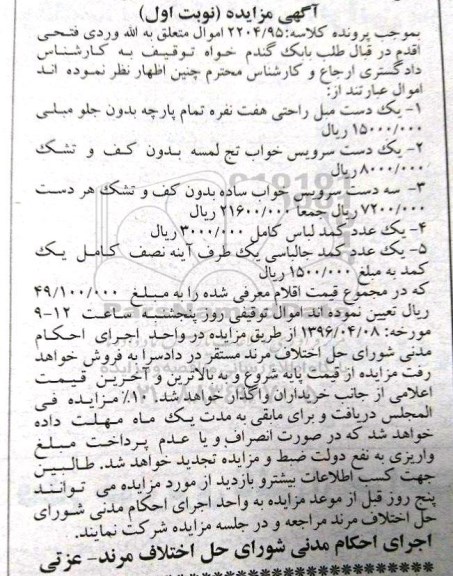 آگهی مزایده (نوبت اول)
بموجب پرونده کلاسه: ۲۲۰۴/۹۵ اموال متعلق به الله وردی فتحی
اقدم در قبال طلب بابک گندم خواه توقیف به کارشناس
دادگستری ارجاع و کارشناس محترم چنین اظهار نظر نموده اند
اموال عبارتند از:
۱- یک دست مبل راحتی هفت نفره تمام پارچه بدون جلو مبلی
۱۵۰۰۰/۰۰۰ ریال
۲- یک دست سرویس خواب تج لمسه بدون کف و تشک
۸۰۰۰/۰۰۰ ریال
۳- سه دست سرویس خواب ساده بدون کف و تشک هر دست
۷۲۰۰/۰۰۰ ریال جمعا ۲۱۶۰۰/۰۰۰ ریال
۴- یک عدد کمد لباس کامل ۳۰۰۰/۰۰۰ ریال
۵- یک عدد کمد جالباسی یک طرف آینه نصف کامل یک
کمد به مبلغ ۱۵۰۰/۰۰۰ ریال
که در مجموع قیمت اقلام معرفی شده را به مبلغ ۴۹/۱۰۰/۰۰۰
ریال تعیین نموده اند اموال توقیفی روز پنجشنبه ساعت ۱۲-۹
مورخه: ۱۳۹۶/۰۴/۰۸ از طریق مزایده در واحد اجرای احکام
مدنی شورای حل اختلاف مرند مستقر در دادسرا به فروش خواهد
رفت مزایده از قیمت پایه شروع و به بالاترین و آخرین قیمت
اعلامی از جانب خریداران واگذار خواهد شد. ۱۰٪ مزایده فی
المجلس دریافت و برای مابقی به مدت یک ماه مهلت داده
خواهد شد که در صورت انصراف و یا عدم پرداخت مبلغ
واریزی به نفع دولت ضبط و مزایده تجدید خواهد شد. طالبین
جهت کسب اطلاعات بیشتر و بازدید از مورد مزایده می توانند
پنج روز قبل از موعد مزایده به واحد اجرای احکام مدنی شورای
حل اختلاف مرند مراجعه و در جلسه مزایده شرکت نمایند.
اجرای احکام مدنی شورای حل اختلاف مرند- عزتی